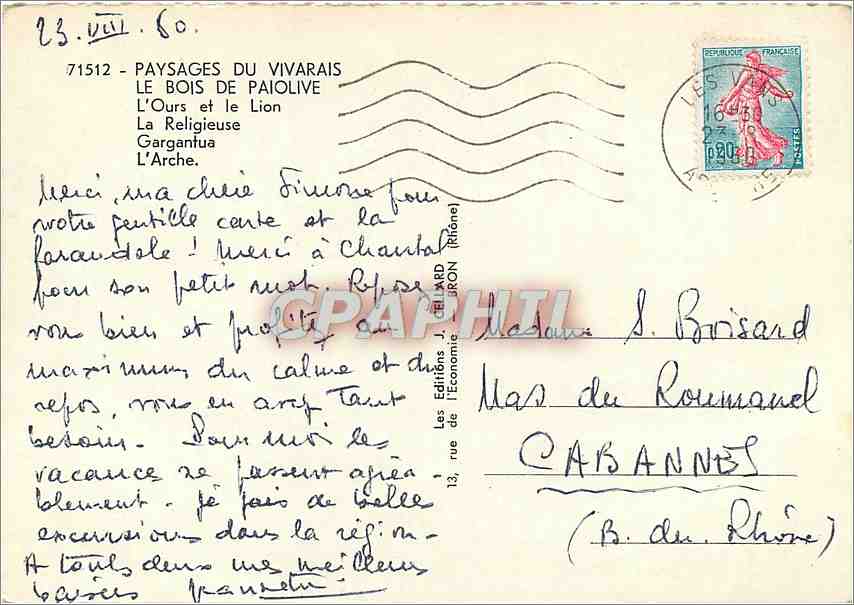 23. VIII. 60.
71512 - PAYSAGES DU VIVARAIS
LE BOIS DE PAIOLIVE
L'Ours et le Lion
La Religieuse
Gargantua
L'Arche.
Merci, ma chère Simone pour
votre gentille carte et la
farandole ! Merci à Chantal
pour son petit mot. Repose
vous bien et profitez au
maximum du calme et du
repos, vous en avez tant
besoin. Pour moi les
vacances se passent agréa-
blement - je fais de belles
excursions dans la région -
A toutes deux mes meilleurs
baisers
Les Editions J. CELLARD
13, rue de l'Economie BRON (Rhône)
REPUBLIQUE FRANÇAISE
0,20
POSTES
LES VANS
16-30
23-8
1960
Madame S. Boisard
Mas du Roumanel
CABANNES
(B. du Rhône)
CPAPHIL